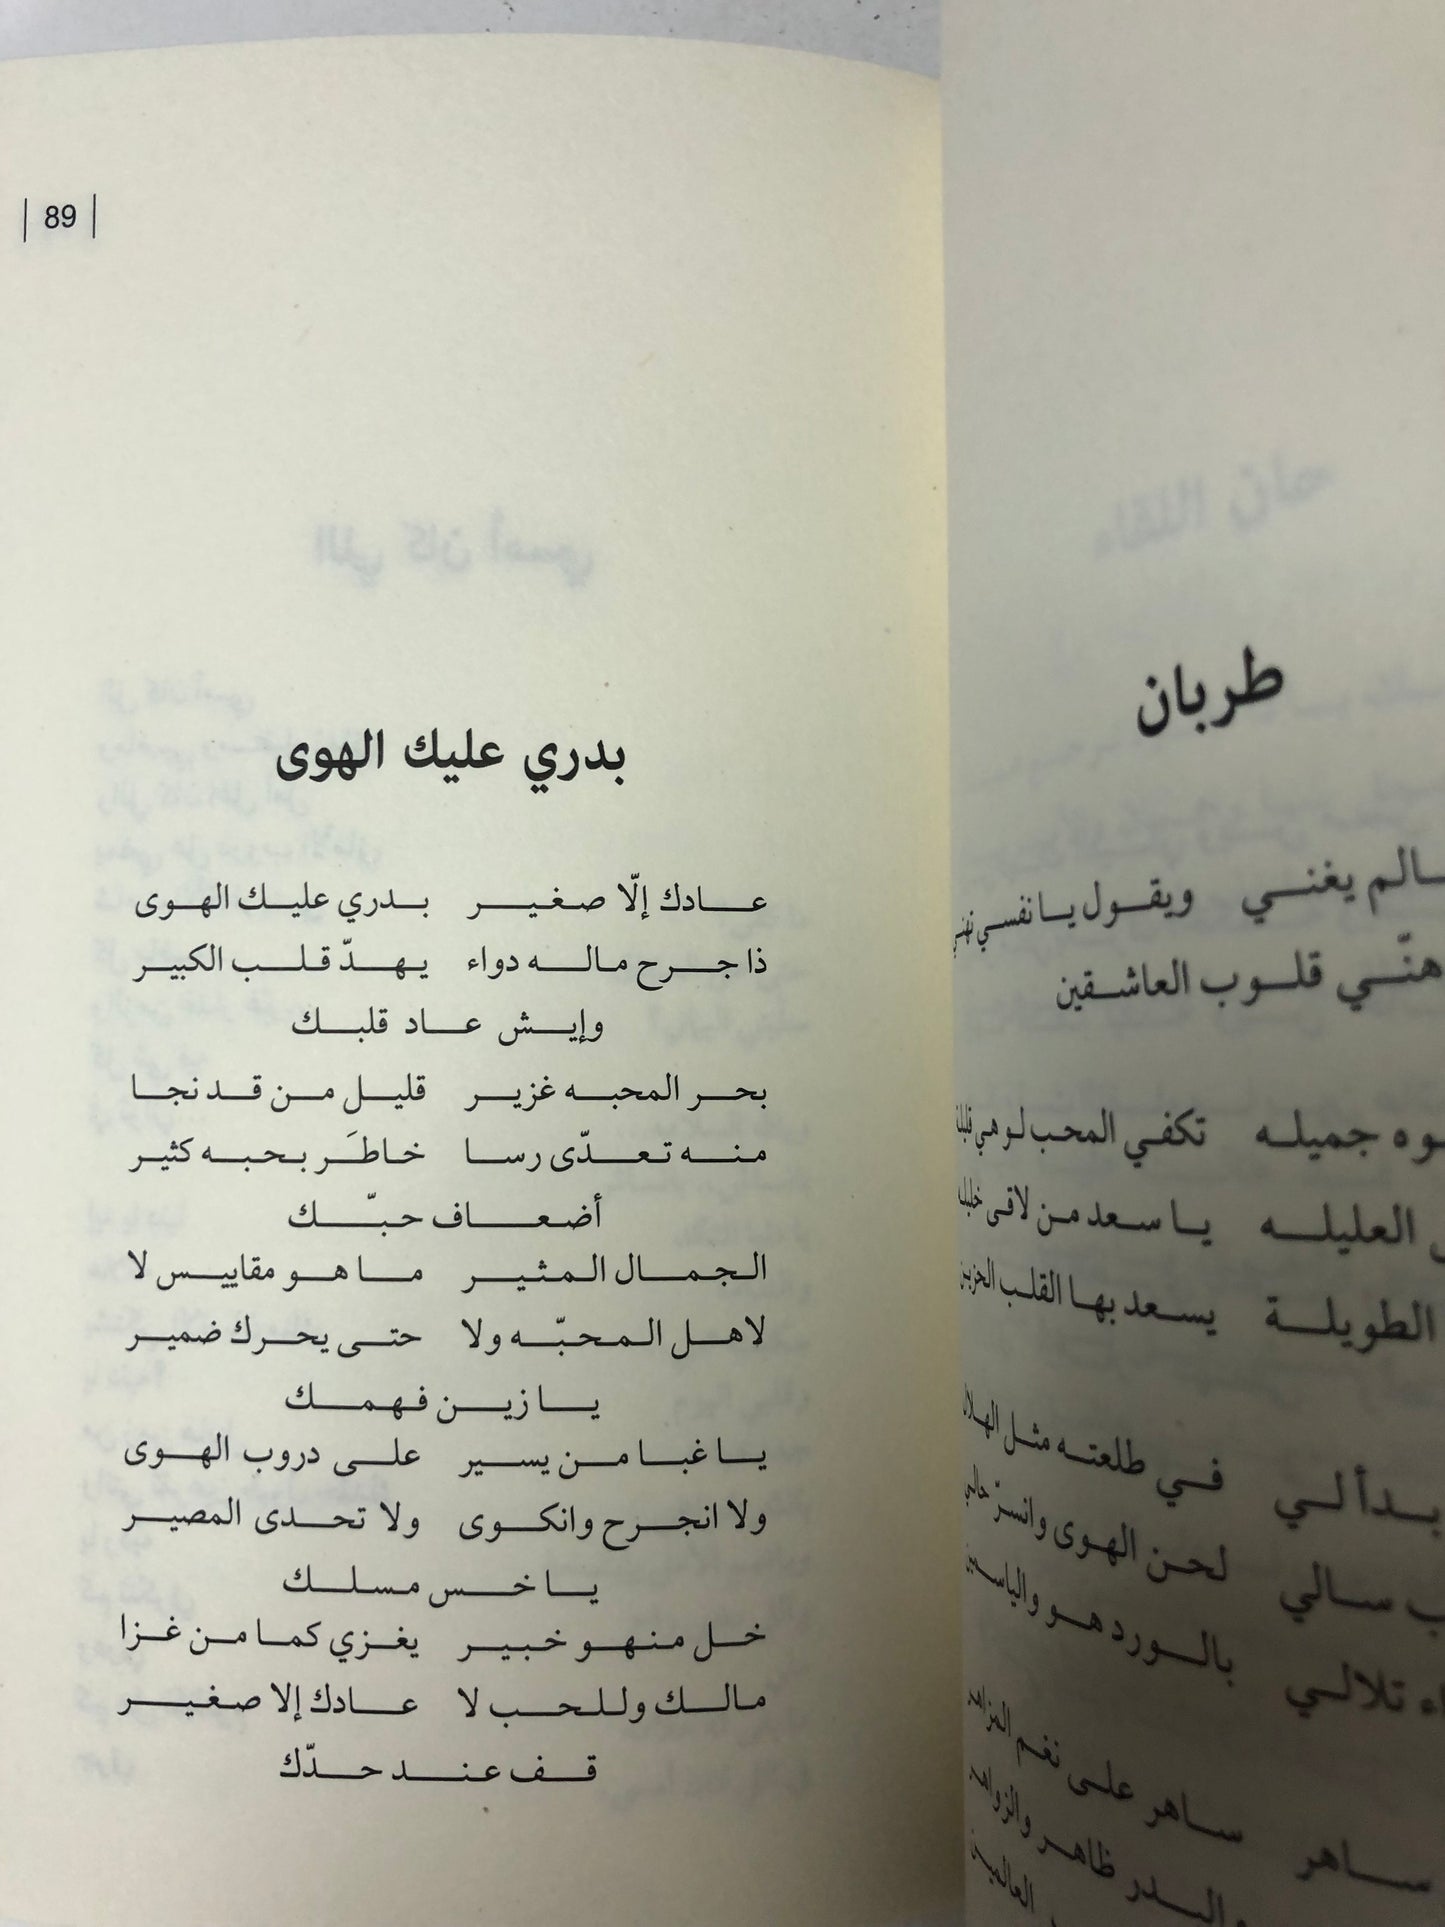 | 89 |
بدري عليك الهوى
عادك إلّا صغير بدري عليك الهوى
ذا جرح ماله دواء يهدّ قلب الكبير
وإيش عاد قلبك
بحر المحبه غزير قليل من قد نجا
منه تعدّى رسا خاطَر بحبه كثير
أضعاف حبّك
الجمال المثير ما هو مقاييس لا
لاهل المحبّه ولا حتى يحرك ضمير
يا زين فهمك
يا غبا من يسير على دروب الهوى
ولا انجرح وانكوى ولا تحدى المصير
يا خس مسلك
خل منهو خبير يغزي كما من غزا
مالك وللحب لا عادك إلا صغير
قف عند حدّك
طربان
يغني ويقول يا نفسي
قلوب العاشقين
جميله تكفي المحب لو هي
العليله يا سعد من لاقى
الطويلة يسعد بها القلب الحزين
بدأ لي في طلعته مثل الهلال
سالي لحن الهوى وانسرّ حالي
تلالي بالورد هو والياسمين
ساهر ساهر على نغم
والبدر ظاهر